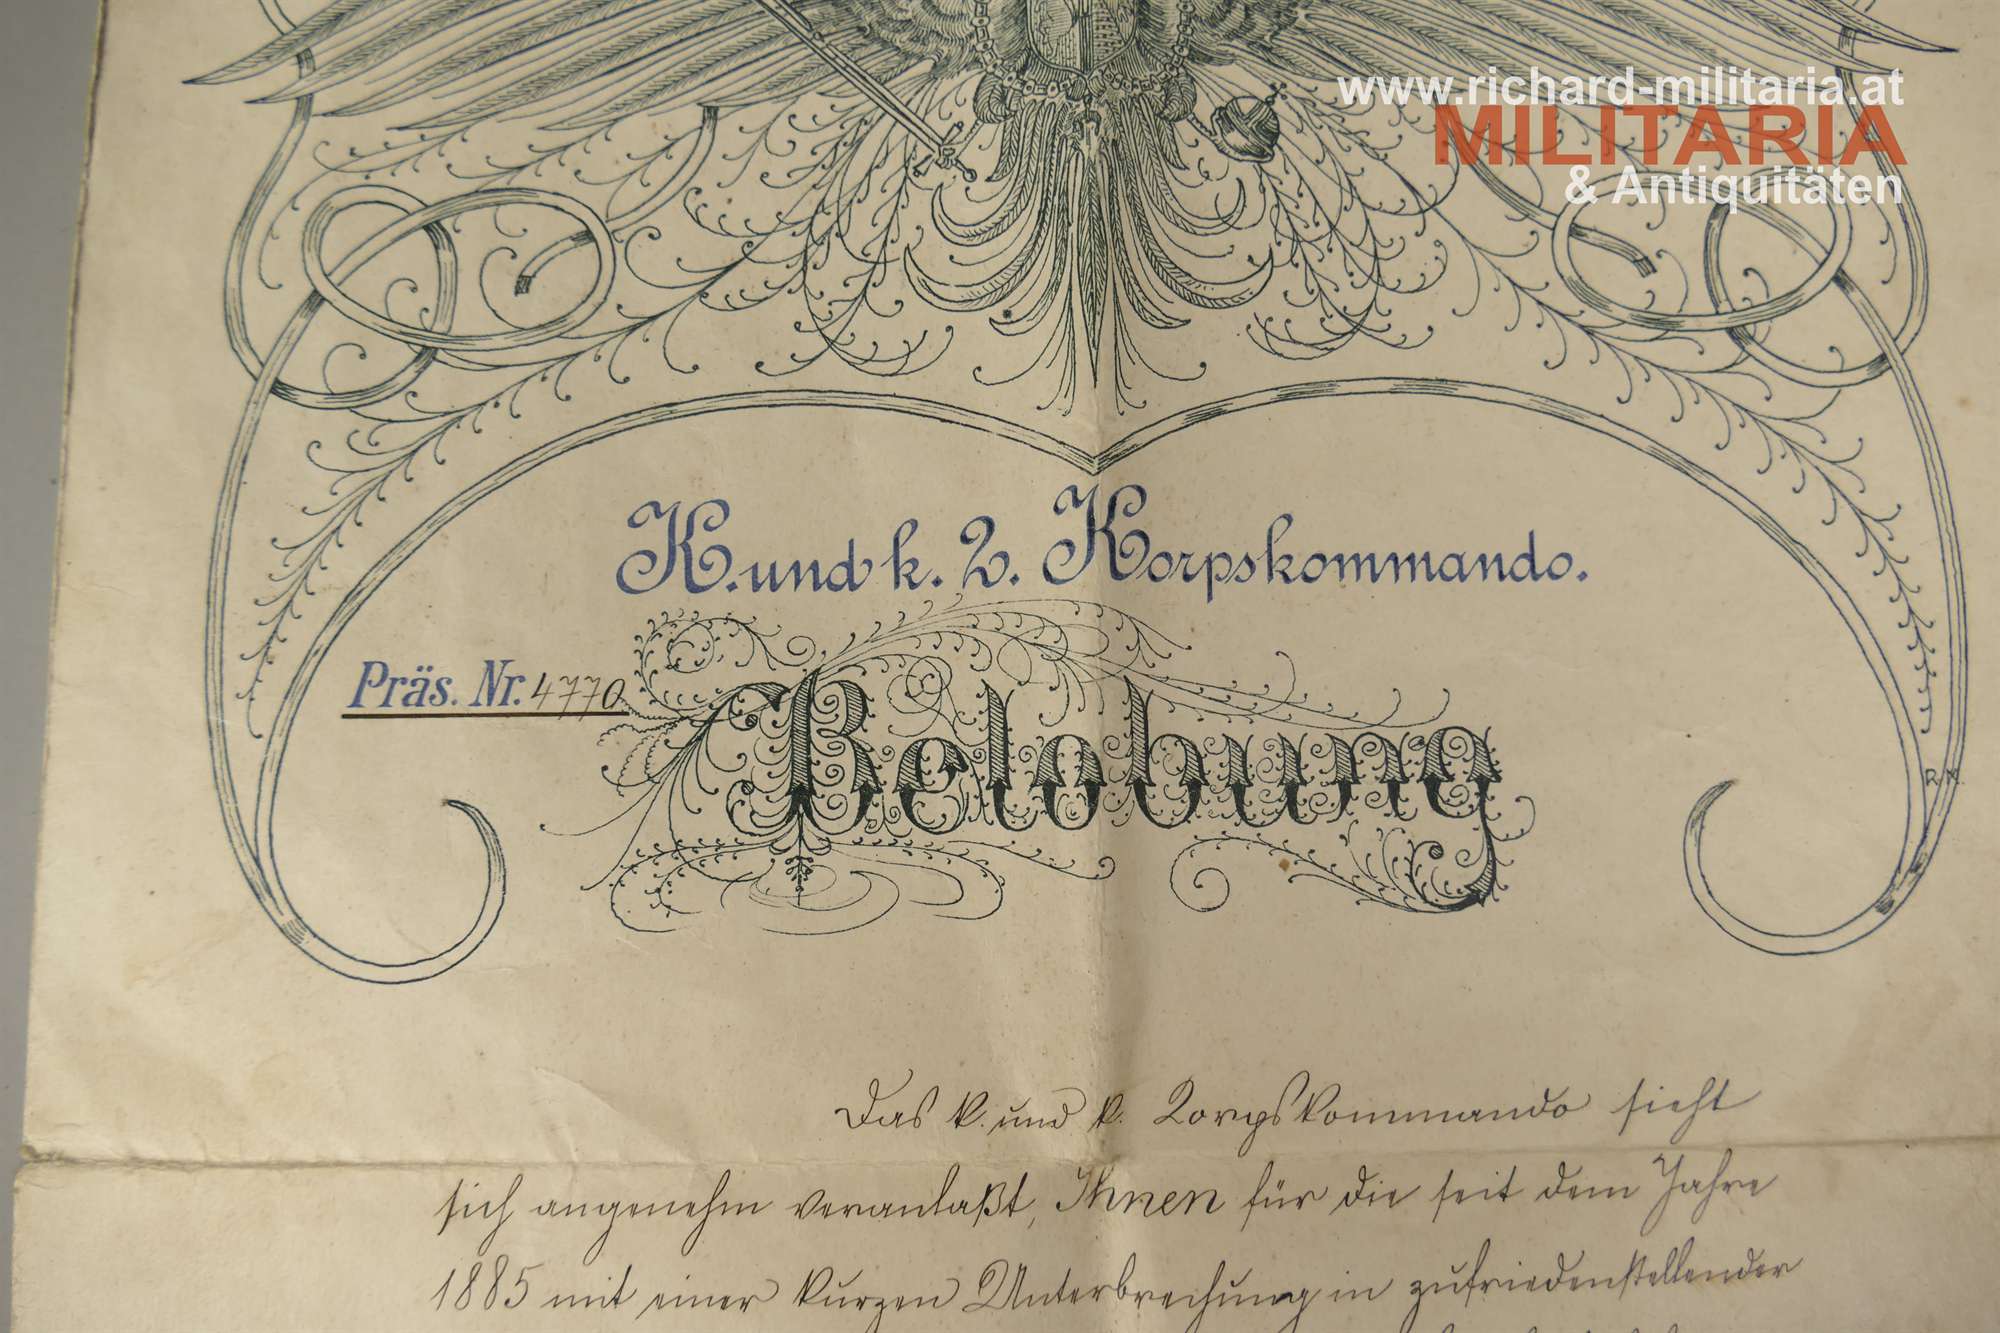 www.richard-militaria.at
MILITARIA
& Antiquitäten
K. und k. 2. Korpskommando.
Präs. Nr. 4770.
Belobung
R N
Das k. und k. Korpskommando sieht
sich angenehm veranlaßt, Ihnen für die seit dem Jahre
1885 mit einer kurzen Unterbrechung in zufriedenstellender